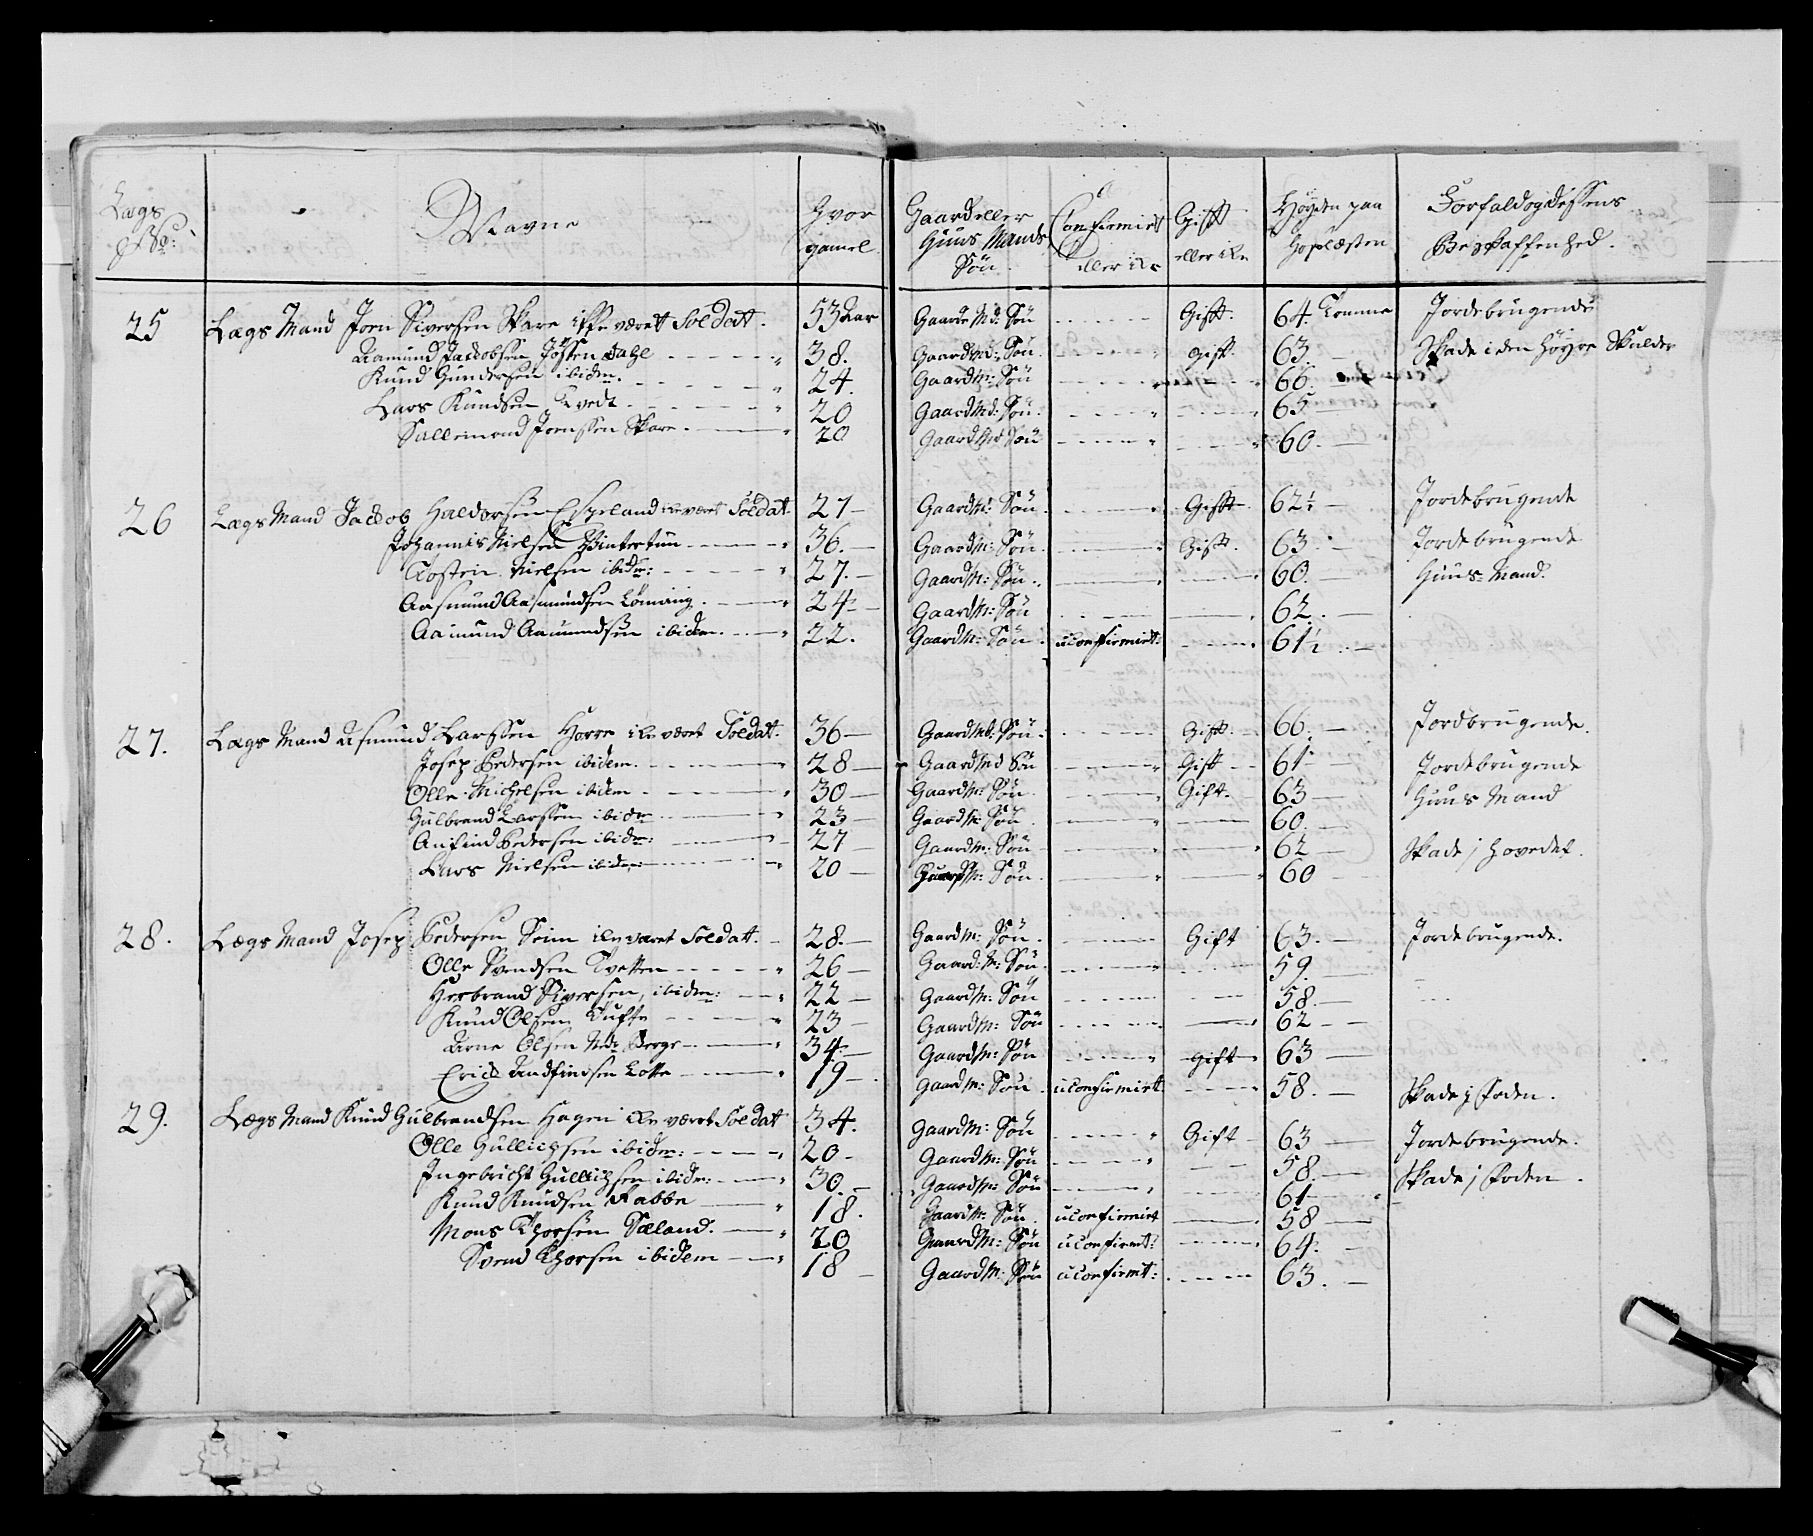 Lægs No: Navne Hvor gamel. Gaard eller Huus Mands Søn. Confirmirt eller ike Gift eller ike Høyden paa Hoslæsten Forfald og dessens Beskaffenhed.
25 Lægs Mand Joen Siversen Skare ikke været Soldat. 53 Aar Gaarde Md: Søn Gift. 64. Tomme Jordebrugende
Aamund Jackobsen Jøsten dahl 38. Gaardmd: Søn. Gift. 63. Skade i den Høyre Skulder
Knud Gundersen ibidem. 24. Gaardm: Søn 66.
Lars Knudsen Qvede 20 Gaardmd: Søn. 65
Sallemond Joenssen Skare. 20 Gaardmd Søn 60.
26 Lægs Mand Jackob Haldorsen Espeland ike været Soldat 27 Gaardmd: Søn. Gifft 62½ Jordebrugende
Johannis Nielsen Wintertun 36. Gaardm: Søn. Gift. 63. Jordebrugende
Tosten Nielsen ibidm: 27. Gaardm: Søn. 60. Huus-Mand.
Aasmund Aasmundsen Lømming. 24 Gaardm: Søn 62.
Aamund Aamundsen ibidem. 22. Gaardm: Søn. uconfirmirt: 61½
27. Lægs Mand Asmund Larssen Horre ike været Soldat. 36 Gaardmd: Søn. Gift. 66. Jordbrugende.
Josep Pedersen ibidem. 28 Gaardmd Søn Gift 61 Jordebrugende
Olle Michelsen ibidem 30 Gaardm: Søn. Gift. 63 Huus Mand
Gulbrand Larssen ibidm 23 Gaardm: Søn. 60.
Anfind Pedersen ibidm: 27 Gaardm: Søn 62 Skade j Hovedet.
Lars Nielsen ibidm: 20 Huusm: Søn. 60
28. Lægs Mand Josep Pedersen Seim ike været Soldatt. 28. Gaardm: Søn. Gift 63. Jordebrugende.
Olle Svendsen Tvetten 26 Gaard:m: Søn. 59.
Herbrand Siversen, ibidm: 22 Gaardm: Søn 58.
Knud Olsen Tufte 23 Gaardm: Søn 62
Arne Olsen Ndr Berge 34. Gaardm: Søn Gift 63
Erick Andfindsen Lotte 19 Gaardm: Søn. uconfirmirt 58. Skade j Foden.
29. Lægs Mand Knud Gulbrandsen Hagen ike været Soldat 34. Gaardm: Søn Gift 63 Jordebrugende.
Olle Gullichsen ibidm: 20 Gaardm: Søn 58. Skade j Foden.
Ingebricht Gullichsen ibidm: 30. Gaardm: Søn 61
Knud Knudsen Rabbe 18. Gaardm: Søn. uconfirmirt 58
Mons Thorsen Sæland. 20 Gaardm: Søn uconfirmt: 64.
Svend Thorsen ibidem 18 Gaardm: Søn uconfirmt: 63.